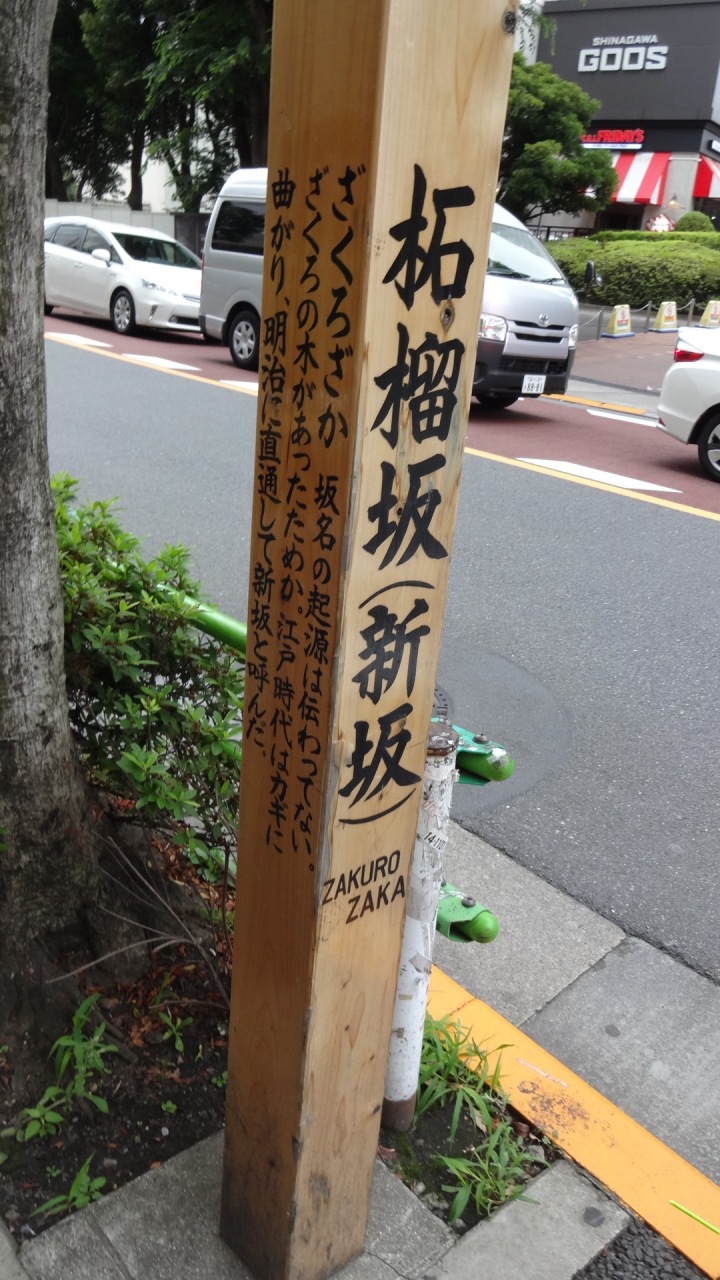 柘榴坂(新坂)
ZAKURO
ZAKA
ざくろざか 坂名の起源は伝わってない。
ざくろの木があったためか。江戸時代はカギに
曲がり、明治に直通して新坂と呼んだ。
SHINAGAWA
GOOS
FRIDAY'S